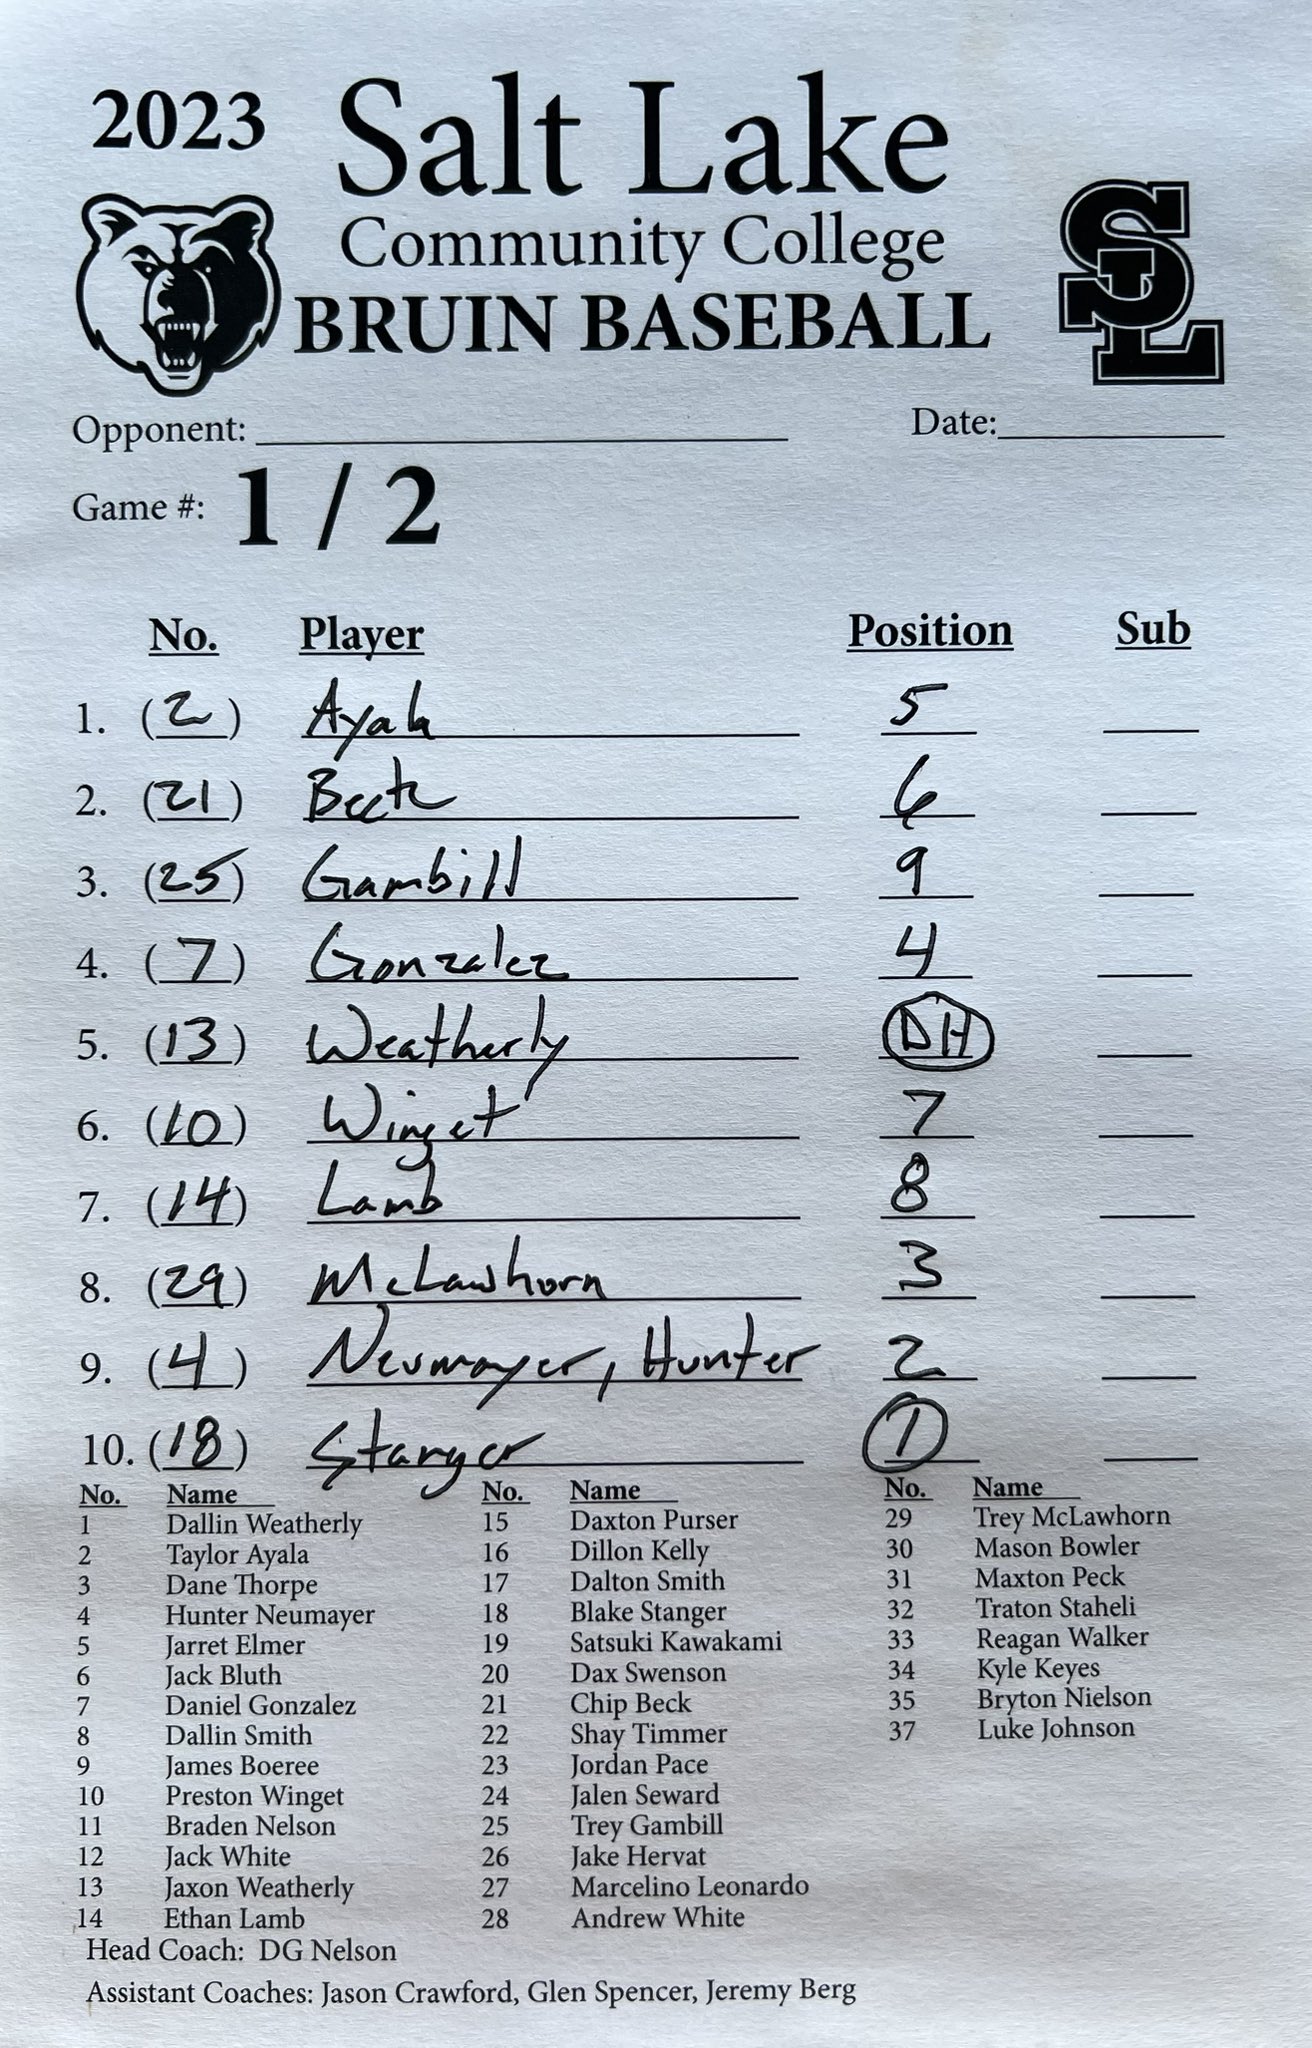 2023 Salt Lake
Community College
BRUIN BASEBALL
SL
Opponent: Date:
Game #: 1 / 2
No. Player Position Sub
1. (2) Ayala 5
2. (21) Beck 6
3. (25) Gambill 9
4. (7) Gonzalez 4
5. (13) Weatherly DH
6. (10) Winget 7
7. (14) Lamb 8
8. (29) McLawhorn 3
9. (4) Neumayer, Hunter 2
10. (18) Stanger 1
No. Name
1 Dallin Weatherly
2 Taylor Ayala
3 Dane Thorpe
4 Hunter Neumayer
5 Jarret Elmer
6 Jack Bluth
7 Daniel Gonzalez
8 Dallin Smith
9 James Boeree
10 Preston Winget
11 Braden Nelson
12 Jack White
13 Jaxon Weatherly
14 Ethan Lamb
No. Name
15 Daxton Purser
16 Dillon Kelly
17 Dalton Smith
18 Blake Stanger
19 Satsuki Kawakami
20 Dax Swenson
21 Chip Beck
22 Shay Timmer
23 Jordan Pace
24 Jalen Seward
25 Trey Gambill
26 Jake Hervat
27 Marcelino Leonardo
28 Andrew White
No. Name
29 Trey McLawhorn
30 Mason Bowler
31 Maxton Peck
32 Traton Staheli
33 Reagan Walker
34 Kyle Keyes
35 Bryton Nielson
37 Luke Johnson
Head Coach: DG Nelson
Assistant Coaches: Jason Crawford, Glen Spencer, Jeremy Berg